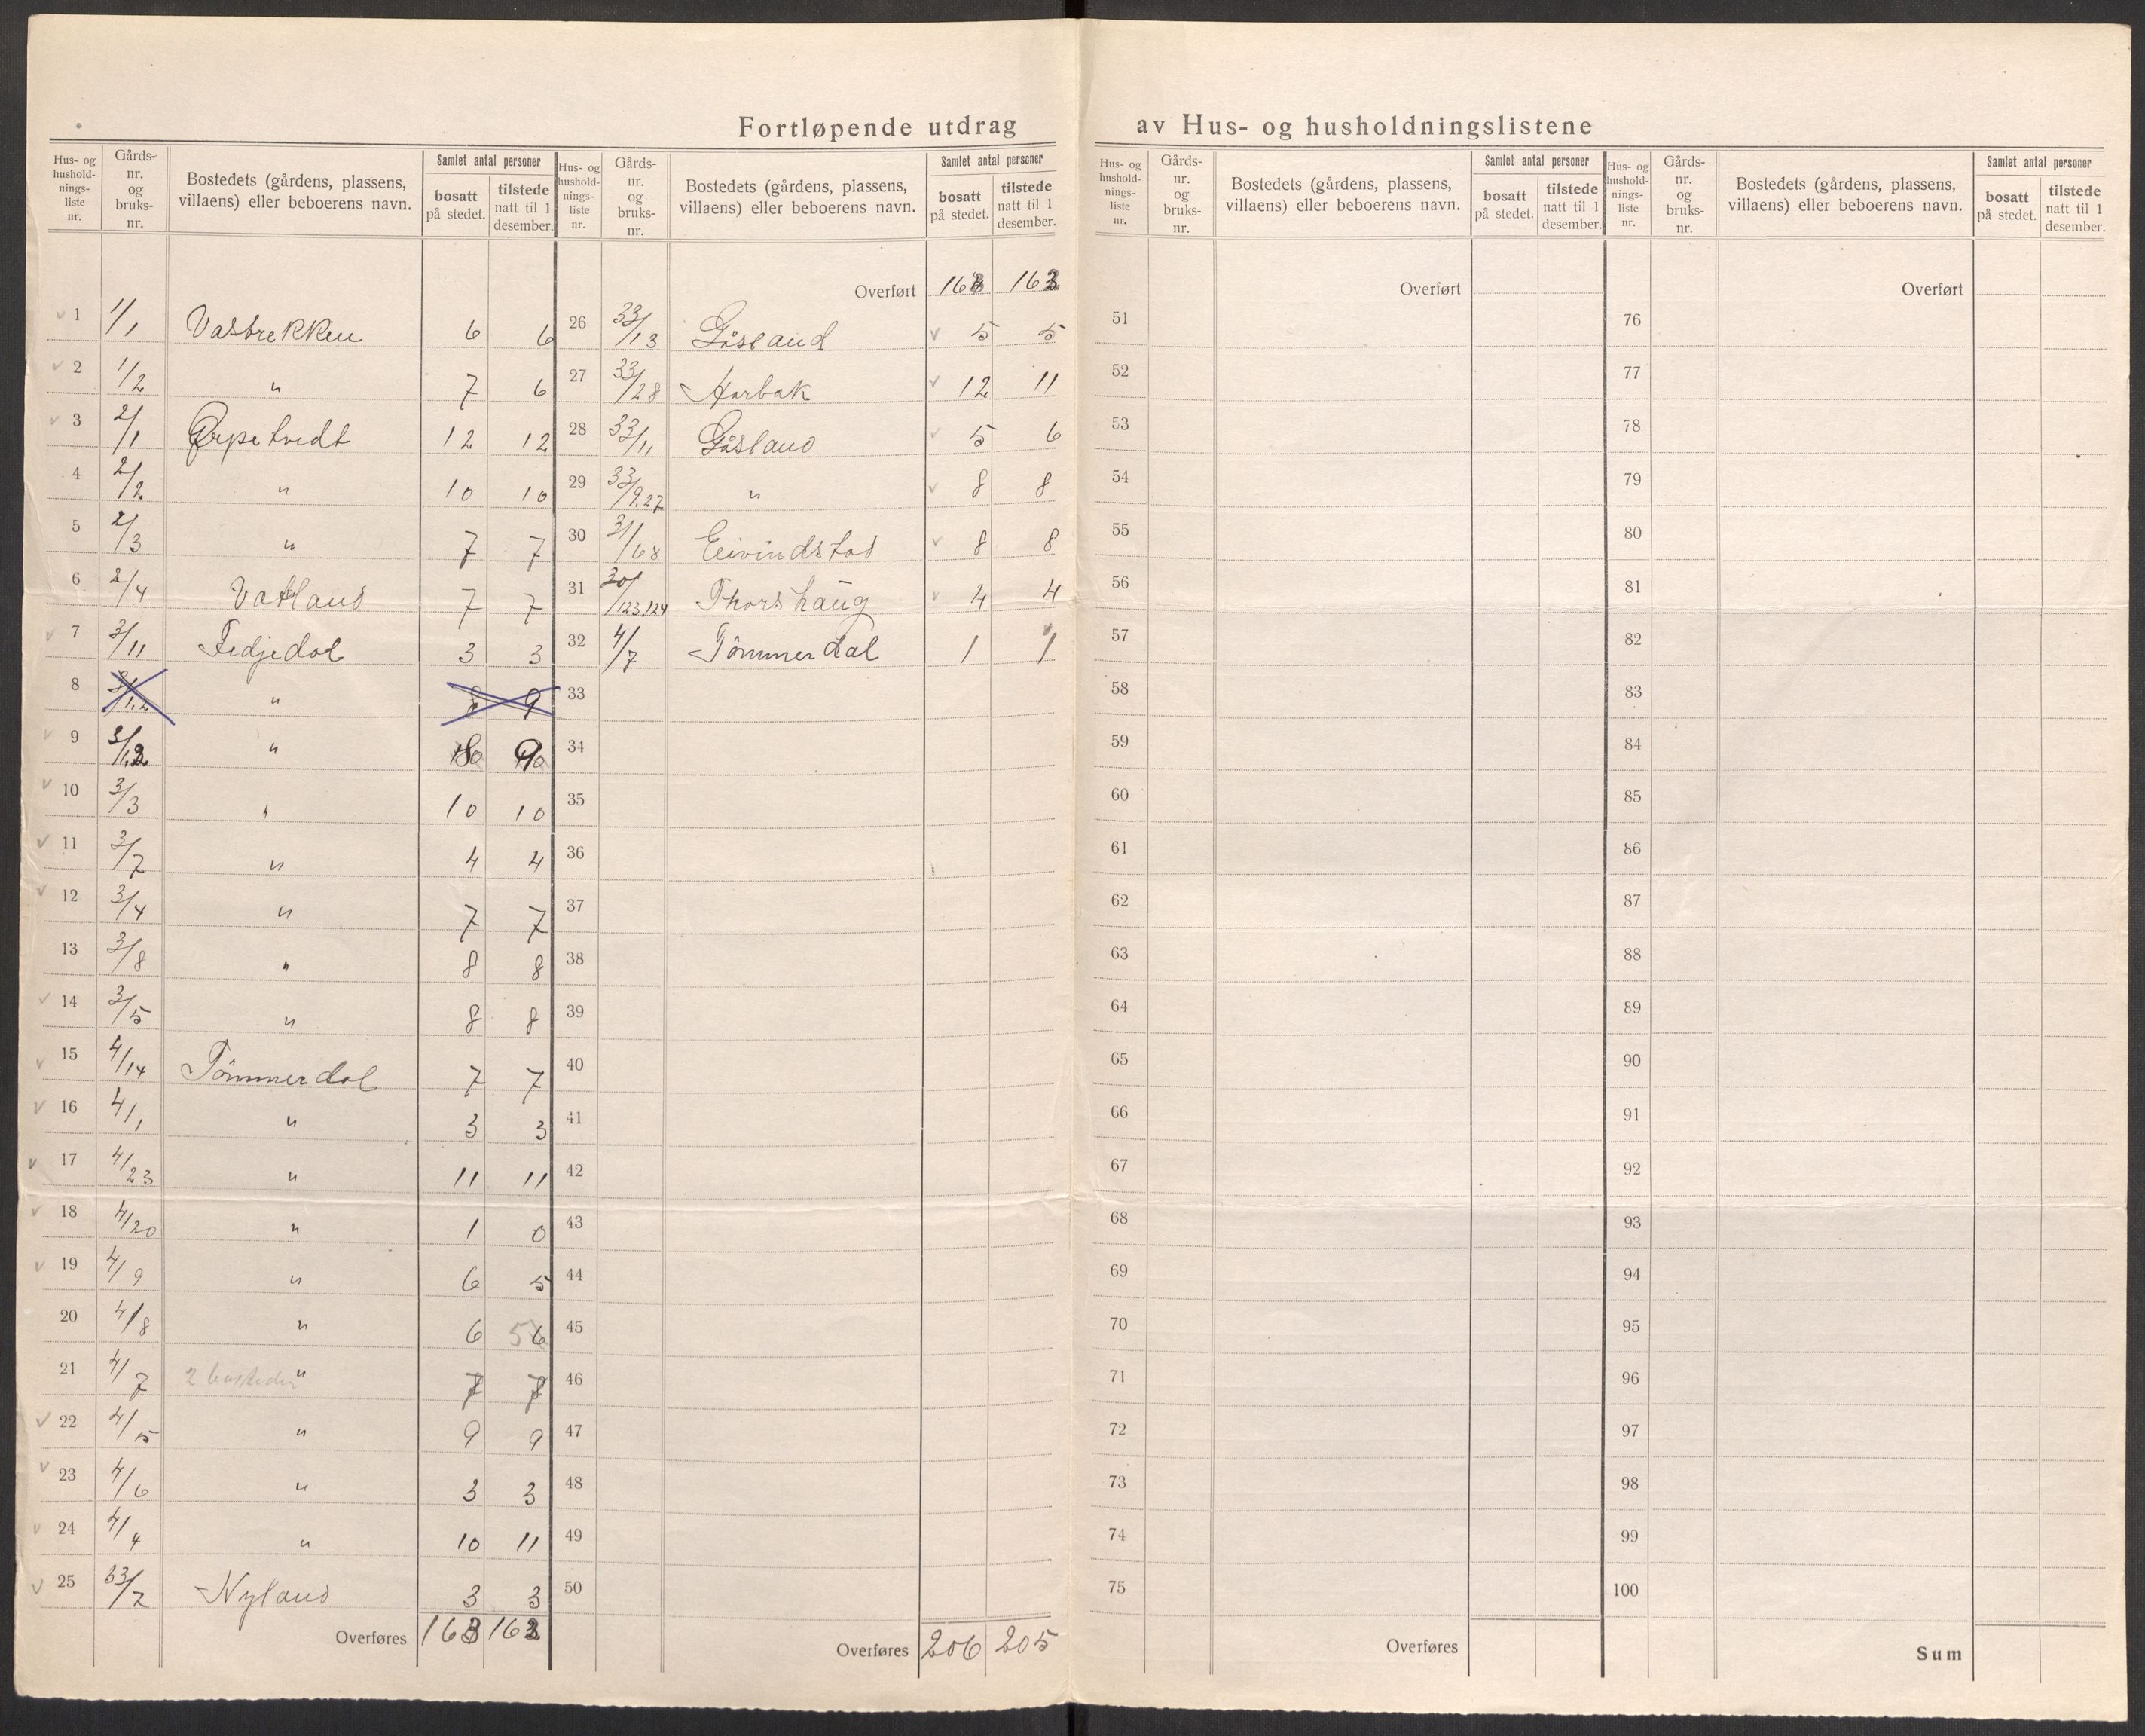 Fortløpende utdrag av Hus- og husholdningslistene
Hus- og hushold-nings-liste nr. | Gårds-nr. og bruks-nr. | Bostedets (gårdens, plassens, villaens) eller beboerens navn. | Samlet antal personer | bosatt på stedet. | tilstede natt til 1 desember.
1 1/1 Vasbrekken 6 6
2 1/2 " 7 6
3 2/1 Ørpetvedt 12 12
4 2/2 " 10 10
5 2/3 " 7 7
6 2/4 Vatland 7 7
7 3/11 Fedjedal 3 3
8 3/1.2 " 8 9
9 3/1.2 " 8 9
10 3/3 " 10 10
11 3/7 " 4 4
12 3/4 " 7 7
13 3/8 " 8 8
14 3/5 " 8 8
15 4/14 Tømmerdal 7 7
16 4/1 " 3 3
17 4/23 " 11 11
18 4/20 " 1 0
19 4/9 " 6 5
20 4/8 " 6 5 6
21 4/7 2 bosteder " 7 7
22 4/15 " 9 9
23 4/6 " 3 3
24 4/4 " 10 11
25 33/2 Nyland 3 3
Overføres 163 162
Hus- og hushold-nings-liste nr. | Gårds-nr. og bruks-nr. | Bostedets (gårdens, plassens, villaens) eller beboerens navn. | Samlet antal personer | bosatt på stedet. | tilstede natt til 1 desember.
Overført 163 162
26 33/13 Gåsland 5 5
27 33/28 Aarbak 12 11
28 33/11 Gåsland 5 6
29 33/9.27 " 8 8
30 31/68 Eivindstad 8 8
31 30/123.124 Thorshaug 4 4
32 4/7 Tømmerdal 1 1
33
34
35
36
37
38
39
40
41
42
43
44
45
46
47
48
49
50
Overføres 206 205
Hus- og hushold-nings-liste nr. | Gårds-nr. og bruks-nr. | Bostedets (gårdens, plassens, villaens) eller beboerens navn. | Samlet antal personer | bosatt på stedet. | tilstede natt til 1 desember.
Overført
51
52
53
54
55
56
57
58
59
60
61
62
63
64
65
66
67
68
69
70
71
72
73
74
75
Overføres
Hus- og hushold-nings-liste nr. | Gårds-nr. og bruks-nr. | Bostedets (gårdens, plassens, villaens) eller beboerens navn. | Samlet antal personer | bosatt på stedet. | tilstede natt til 1 desember.
Overført
76
77
78
79
80
81
82
83
84
85
86
87
88
89
90
91
92
93
94
95
96
97
98
99
100
Sum